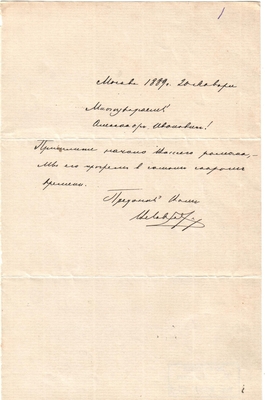 1
Москва 1889 г. 20 Января
Милостивый
Александръ Ивановичъ!
Пришлите начало Вашего романа, –
Мы его прочтемъ в самомъ скоромъ
времени.
Преданный Вамъ